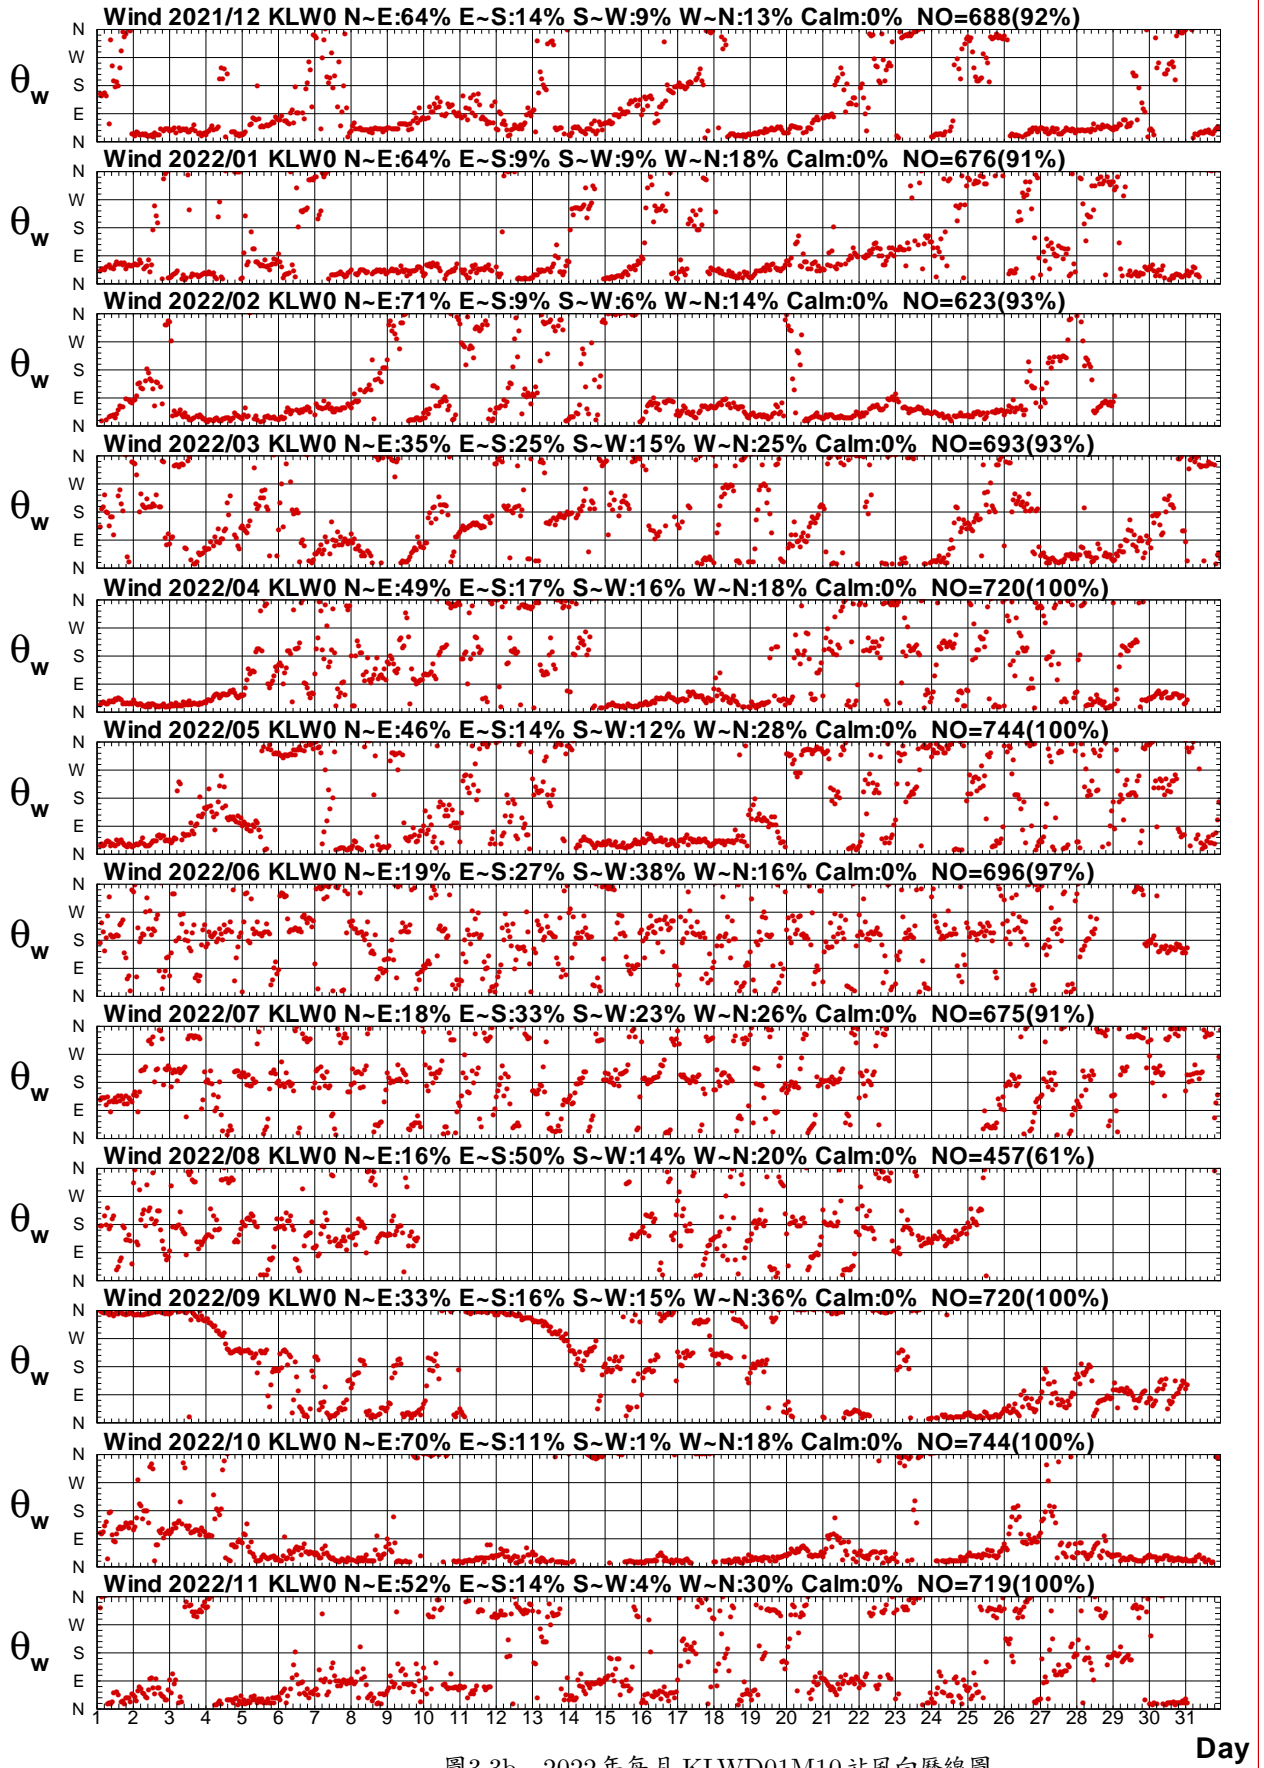 Wind 2021/12 KLW0 N~E:64% E~S:14% S~W:9% W~N:13% Calm:0% NO=688(92%)
N
W
S
E
N
θw
Wind 2022/01 KLW0 N~E:64% E~S:9% S~W:9% W~N:18% Calm:0% NO=676(91%)
N
W
S
E
N
θw
Wind 2022/02 KLW0 N~E:71% E~S:9% S~W:6% W~N:14% Calm:0% NO=623(93%)
N
W
S
E
N
θw
Wind 2022/03 KLW0 N~E:35% E~S:25% S~W:15% W~N:25% Calm:0% NO=693(93%)
N
W
S
E
N
θw
Wind 2022/04 KLW0 N~E:49% E~S:17% S~W:16% W~N:18% Calm:0% NO=720(100%)
N
W
S
E
N
θw
Wind 2022/05 KLW0 N~E:46% E~S:14% S~W:12% W~N:28% Calm:0% NO=744(100%)
N
W
S
E
N
θw
Wind 2022/06 KLW0 N~E:19% E~S:27% S~W:38% W~N:16% Calm:0% NO=696(97%)
N
W
S
E
N
θw
Wind 2022/07 KLW0 N~E:18% E~S:33% S~W:23% W~N:26% Calm:0% NO=675(91%)
N
W
S
E
N
θw
Wind 2022/08 KLW0 N~E:16% E~S:50% S~W:14% W~N:20% Calm:0% NO=457(61%)
N
W
S
E
N
θw
Wind 2022/09 KLW0 N~E:33% E~S:16% S~W:15% W~N:36% Calm:0% NO=720(100%)
N
W
S
E
N
θw
Wind 2022/10 KLW0 N~E:70% E~S:11% S~W:1% W~N:18% Calm:0% NO=744(100%)
N
W
S
E
N
θw
Wind 2022/11 KLW0 N~E:52% E~S:14% S~W:4% W~N:30% Calm:0% NO=719(100%)
N
W
S
E
N
θw
1 2 3 4 5 6 7 8 9 10 11 12 13 14 15 16 17 18 19 20 21 22 23 24 25 26 27 28 29 30 31
Day
圖3.3b 2022年每月KLWD01M10站風向歷線圖